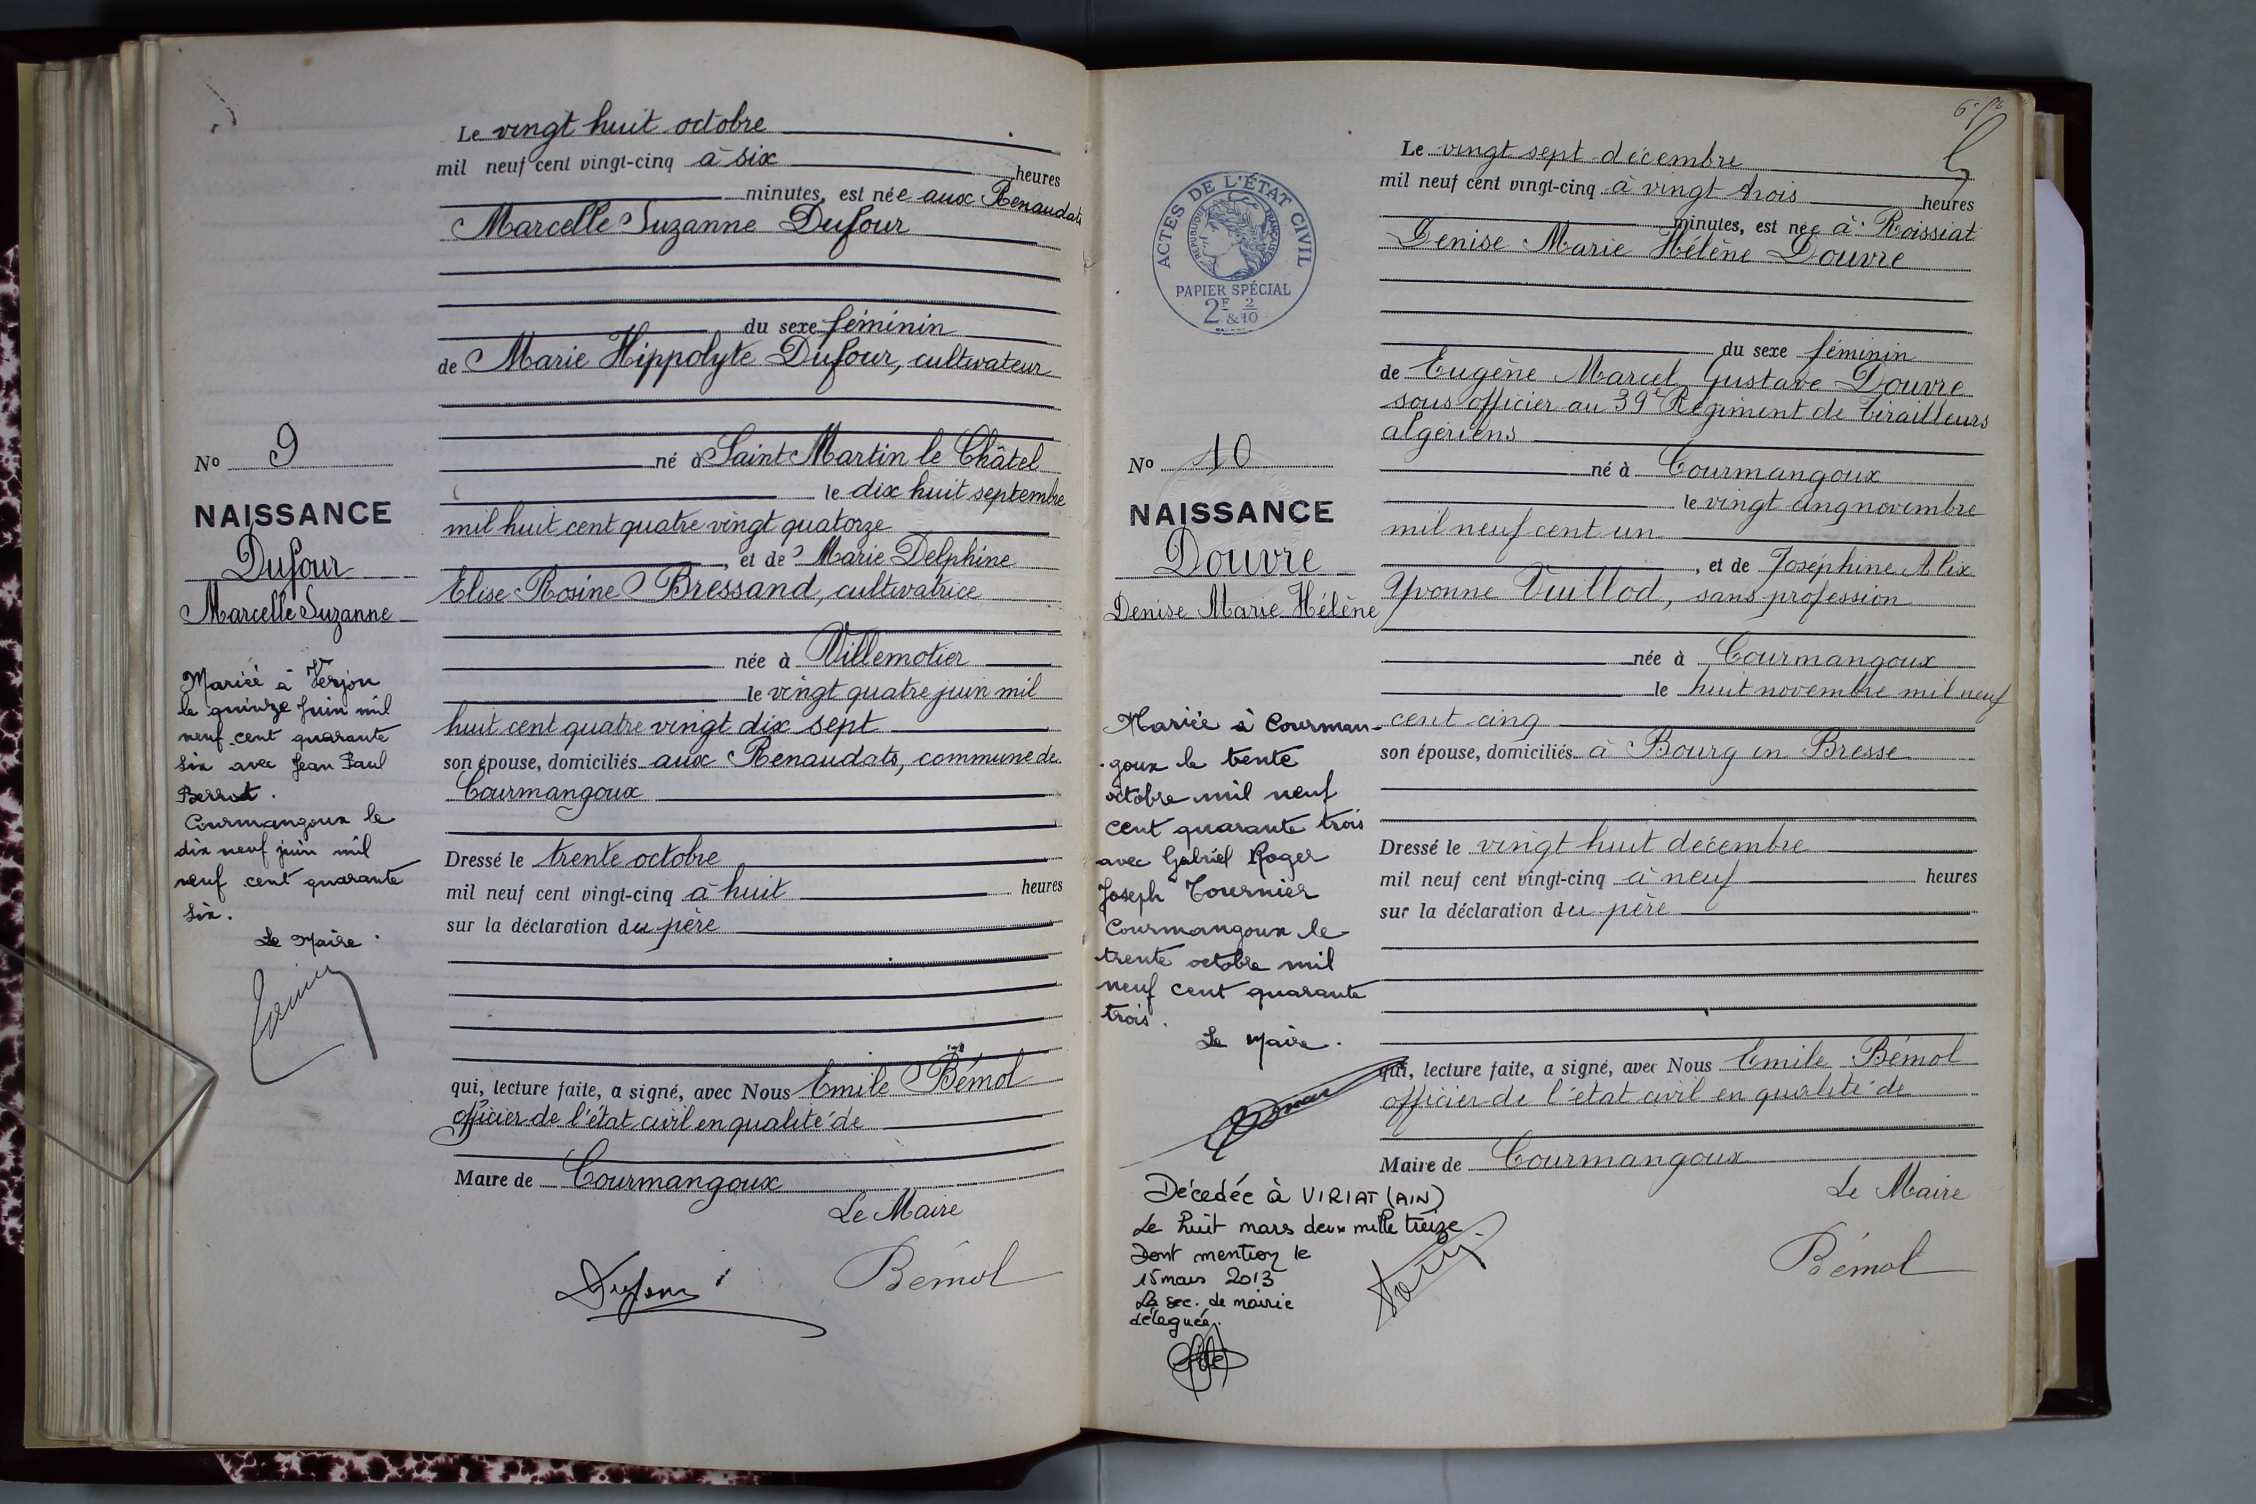 Le vingt huit octobre
mil neuf cent vingt-cinq à six heures
minutes, est née aux Renaudats
Marcelle Suzanne Dufour
du sexe féminin
de Marie Hippolyte Dufour, cultivateur
né à Saint Martin le Châtel
le dix huit septembre
mil huit cent quatre vingt quatorze
, et de Marie Delphine
Elise Rosine Bressand, cultivatrice
née à Villemotier
le vingt quatre juin mil
huit cent quatre vingt dix sept
son épouse, domiciliés aux Renaudats, commune de
Courmangoux
Dressé le trente octobre
mil neuf cent vingt-cinq à huit heures
sur la déclaration du père
qui, lecture faite, a signé, avec Nous Emile Bémol
officier de l'état civil en qualité de
Maire de Courmangoux
Le Maire
Dufour
Bémol
No 9
NAISSANCE
Dufour
Marcelle Suzanne
Mariée à Verjon
le quinze juin mil
neuf cent quarante
six avec Jean Paul
Courmangoux le
dix neuf juin mil
neuf cent quarante
six.
Le Maire.
6
Le vingt sept décembre
mil neuf cent vingt-cinq à vingt trois heures
minutes, est née à Roissiat
Denise Marie Hélène Douvre
du sexe féminin
de Eugène Marcel Gustave Douvre
sous officier au 39e Régiment de tirailleurs
algériens
né à Courmangoux
le vingt cinq novembre
mil neuf cent un
, et de Joséphine Alix
Yvonne Vuillod, sans profession
née à Courmangoux
le huit novembre mil neuf
cent cinq
son épouse, domiciliés à Bourg en Bresse
Dressé le vingt huit décembre
mil neuf cent vingt-cinq à neuf heures
sur la déclaration du père
qui, lecture faite, a signé, avec Nous Emile Bémol
officier de l'état civil en qualité de
Maire de Courmangoux
Le Maire
Bémol
ACTES DE L'ÉTAT CIVIL
RÉPUBLIQUE FRANÇAISE
PAPIER SPÉCIAL
2F & 2/10
No 10
NAISSANCE
Douvre
Denise Marie Hélène
Mariée à Courman-
goux le trente
octobre mil neuf
cent quarante trois
avec Gabriel Roger
Joseph Tournier
Courmangoux le
trente octobre mil
neuf cent quarante
trois.
Le Maire.
Décedée à VIRIAT (AIN)
Le huit mars deux mille treize
Dont mention le
15 mars 2013
La sec. de mairie
déléguée.